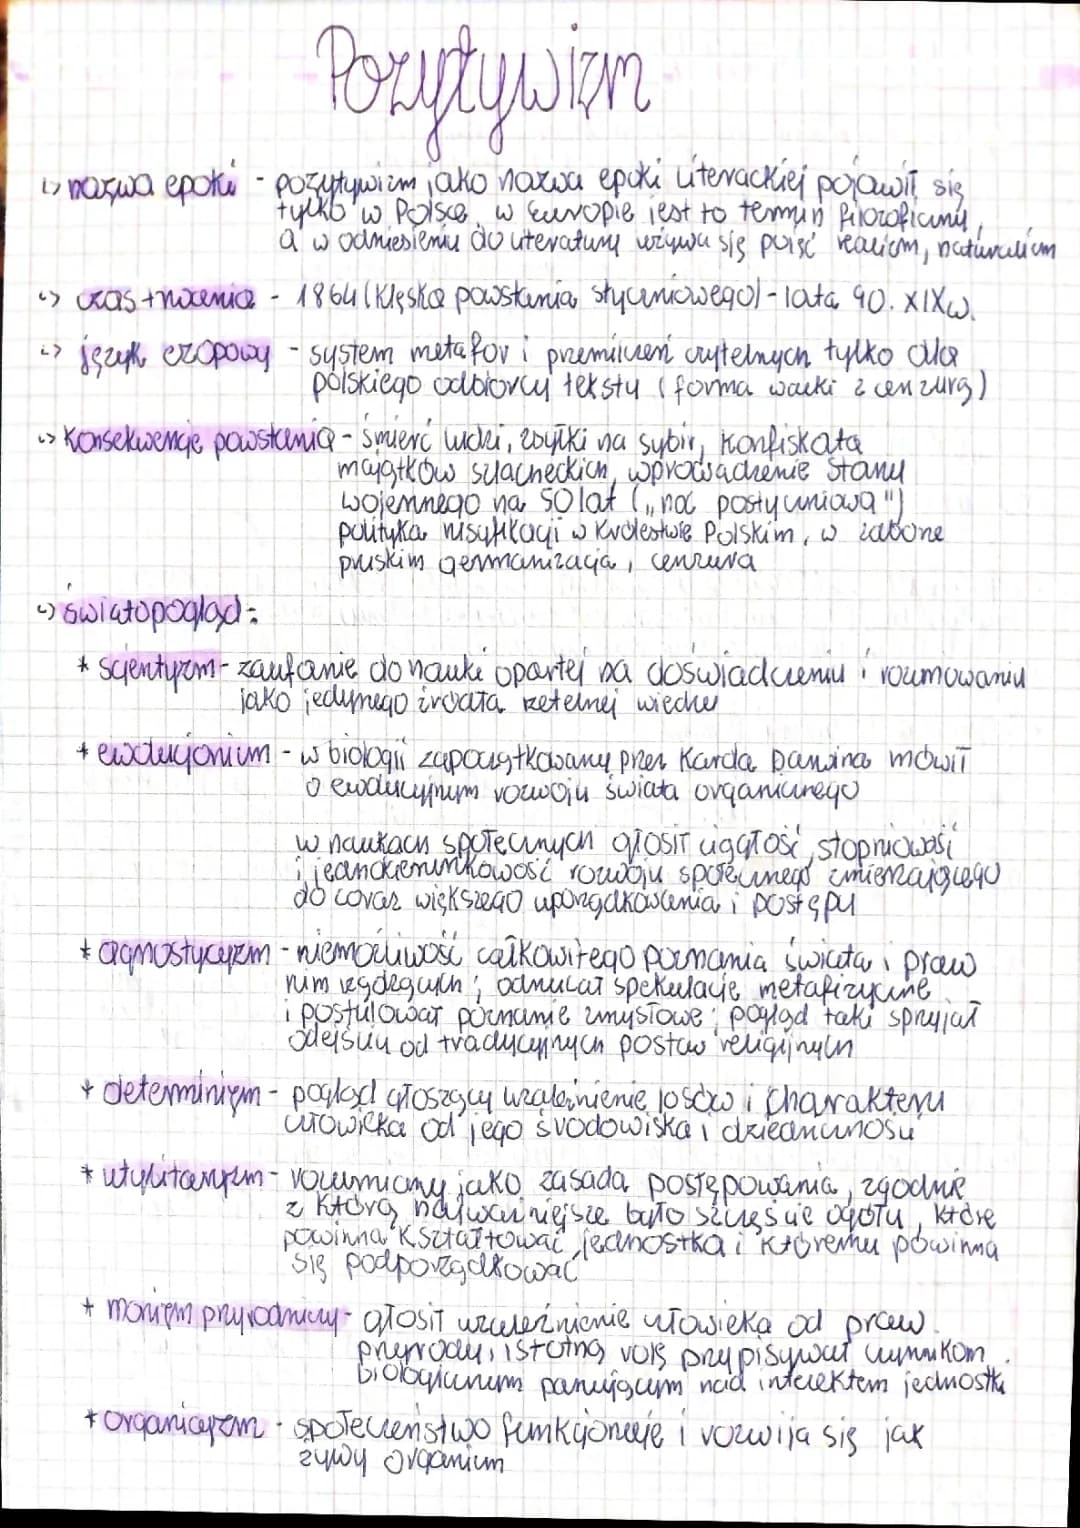 Pozytywizm
↳ nazwa epoki - pozytywizm jako nazwa epoki literackiej pojawił się
tylko w Polsce, w Europie jest to termin filozoficzny,
a w odniesieniu do literatury używa się pojęć realizm, naturalizm
↳ czas trwania - 1864 (klęska powstania styczniowego) - lata 90. XIX w.
↳ język ezopowy - system metafor i przemilczeń czytelnych tylko dla
polskiego odbiorcy tekstu (forma walki z cenzurą)
↳ konsekwencje powstania - śmierć ludzi, zsyłki na sybir, konfiskata
majątków szlacheckich, wprowadzenie stanu
wojennego na 50 lat („noc postyczniowa")
polityka rusyfikacji w Królestwie Polskim, w zaborze
pruskim germanizacja, cenzura
↳ światopogląd:
* scjentyzm - zaufanie do nauki opartej na doświadczeniu i rozumowaniu
jako jedynego źródła rzetelnej wiedzy
* ewolucjonizm - w biologii zapoczątkowany przez Karola Darwina mówił
o ewolucyjnym rozwoju świata organicznego
w naukach społecznych głosił ciągłość, stopniowość
i jednokierunkowość rozwoju społecznego zmierzającego
do coraz większego uporządkowania i postępu
* agnostycyzm - niemożliwość całkowitego poznania świata i praw
nim rządzących; odrzucał spekulacje metafizyczne
i postulował poznanie zmysłowe; pogląd taki sprzyjał
odejściu od tradycyjnych postaw religijnych
* determinizm - pogląd głoszący uzależnienie losów i charakteru
człowieka od jego środowiska i dziedziczności
* utylitaryzm - rozumiany jako zasada postępowania, zgodnie
z którą najważniejsze było szczęście ogółu, które
powinna kształtować jednostka i któremu powinna
się podporządkować
* monizm przyrodniczy - głosił uzależnienie człowieka od praw
przyrody, istotną rolę przypisywał czynnikom
biologicznym panującym nad intelektem jednostki
* organicyzm - społeczeństwo funkcjonuje i rozwija się jak
żywy organizm